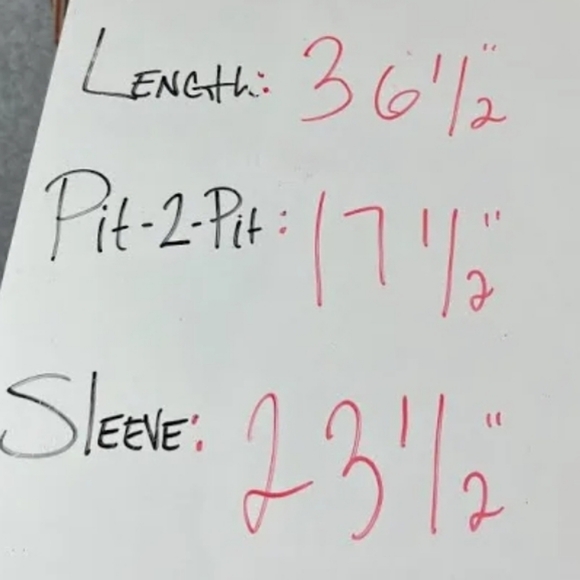 Length: 36 1/2"
Pit-2-Pit: 17 1/2"
Sleeve: 23 1/2"